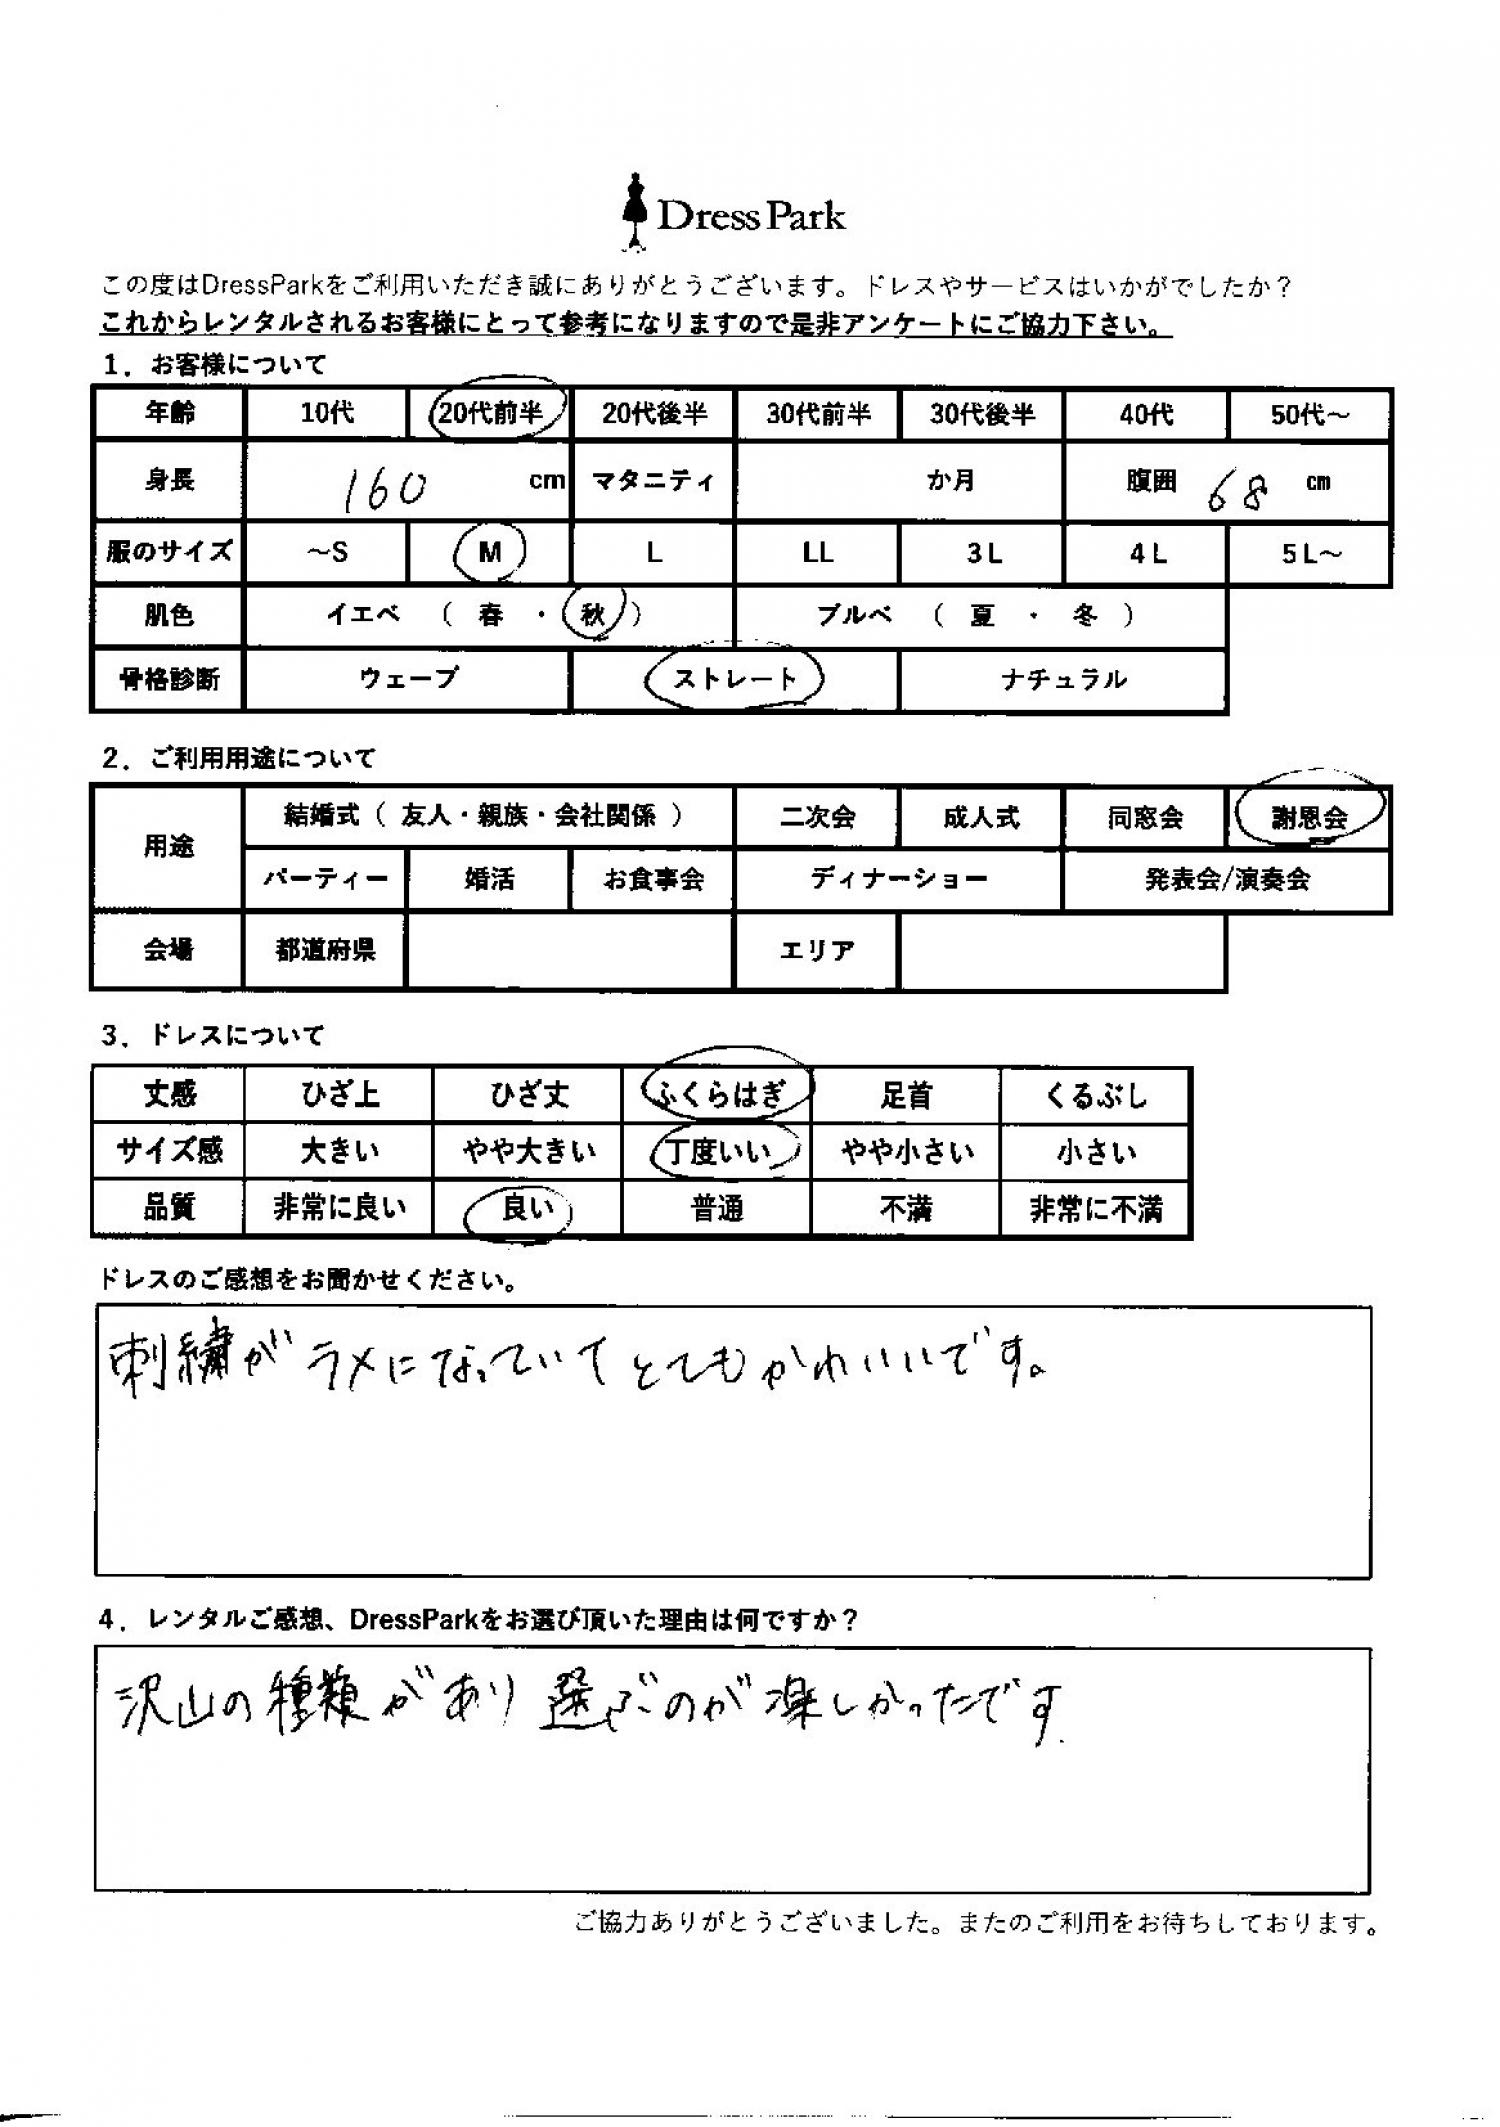 Dress Park
この度はDressParkをご利用いただき誠にありがとうございます。ドレスやサービスはいかがでしたか？
これからレンタルされるお客様にとって参考になりますので是非アンケートにご協力下さい。
1．お客様について
年齢 10代 20代前半 20代後半 30代前半 30代後半 40代 50代～
身長 160 cm マタニティ か月 腹囲 68 cm
服のサイズ ～S M L LL 3L 4L 5L～
肌色 イエベ （ 春 ・ 秋 ） ブルベ （ 夏 ・ 冬 ）
骨格診断 ウェーブ ストレート ナチュラル
2．ご利用用途について
用途 結婚式（ 友人・親族・会社関係 ） 二次会 成人式 同窓会 謝恩会
パーティー 婚活 お食事会 ディナーショー 発表会/演奏会
会場 都道府県 エリア
3．ドレスについて
丈感 ひざ上 ひざ丈 ふくらはぎ 足首 くるぶし
サイズ感 大きい やや大きい 丁度いい やや小さい 小さい
品質 非常に良い 良い 普通 不満 非常に不満
ドレスのご感想をお聞かせください。
刺繍がラメになっていてとてもかわいいです。
4．レンタルご感想、DressParkをお選び頂いた理由は何ですか？
沢山の種類があり選ぶのが楽しかったです
ご協力ありがとうございました。またのご利用をお待ちしております。